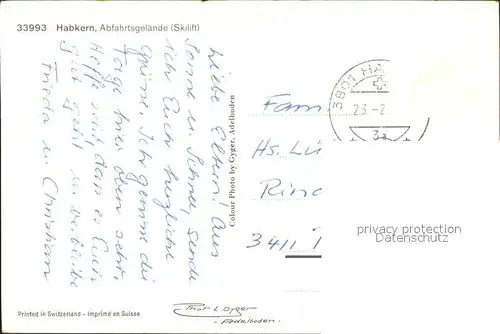 33993 Habkern, Abfahrtsgelände (Skilift)
Liebe Eltern! Aus
Sonne u. Schnee, sende
ich Euch herzliche
Grüsse. Ich geniesse die
Tage hier oben sehr.
Hoffe seit dass es Euch
gut geht u. verbleibe
Frieda u. Christian
Colour Photo by Gyger, Adelboden
3801 HA
23.-2
3a
Fam
Hs. Lü
Rin
3411
privacy protection
Datenschutz
Printed in Switzerland – Imprimé en Suisse
Phot E. Gyger
- Adelboden -